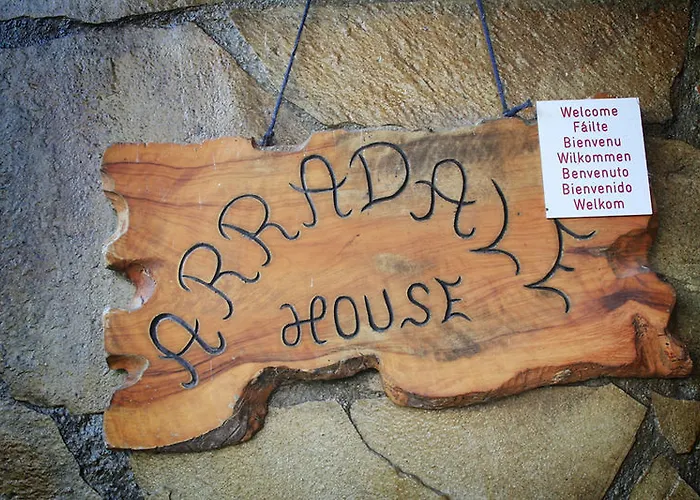 ARRADALE
HOUSE
Welcome
Fáilte
Bienvenu
Wilkommen
Benvenuto
Bienvenido
Welkom